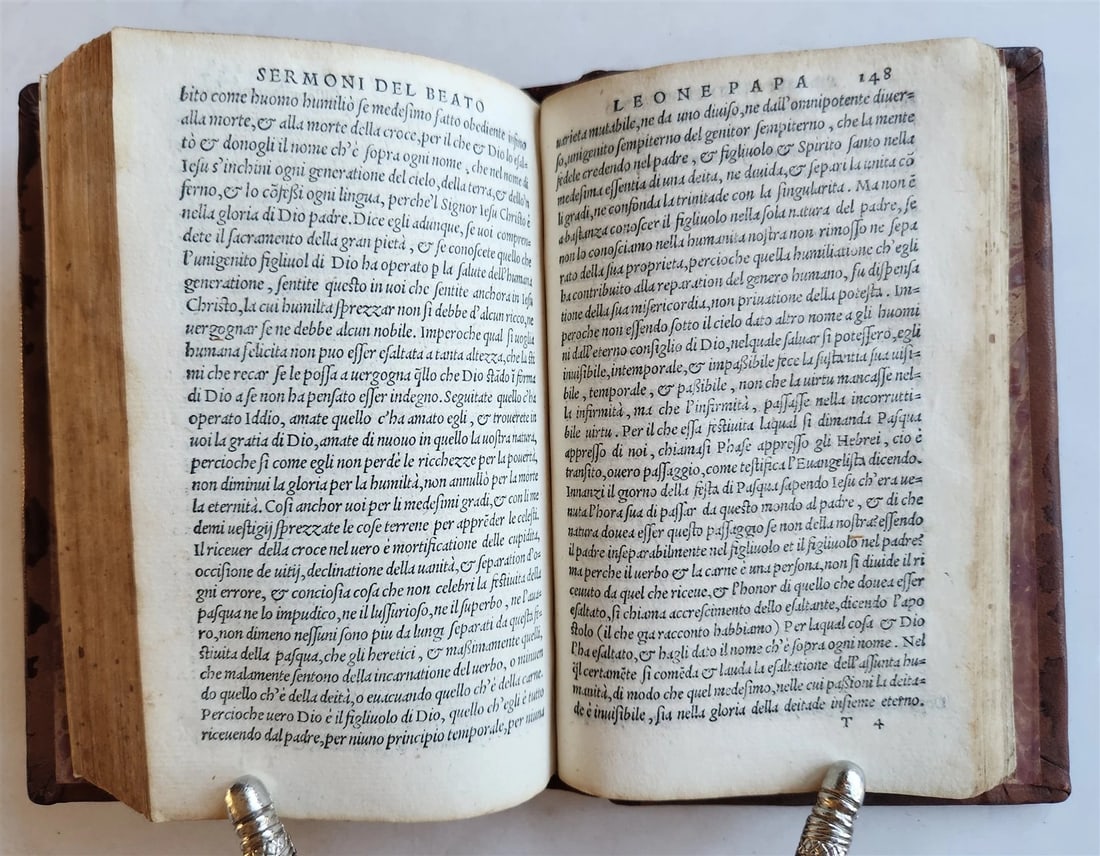 SERMONI DEL BEATO
bito come huomo humiliò se medesimo fatto obediente infino
alla morte,& alla morte della croce,per il che & Dio lo esal-
tò & donogli il nome ch'è sopra ogni nome, che nel nome di
Iesu s'inchini ogni generatione del cielo,della terra,& dello in
ferno,& lo cõfessi ogni lingua, perche'l Signor Iesu Christo è
nella gloria di Dio padre. Dice egli adunque, se uoi compren-
dete il sacramento della gran pietà, & se conoscete quello che
l'unigenito figliuol di Dio ha operato p la salute dell'humana
generatione, sentite questo in uoi che sentite anchora in Iesu
Christo,la cui humilta sprezzar non si debbe d'alcun ricco,ne
uergognar se ne debbe alcun nobile. Imperoche qual si uoglia
humana felicita non puo esser esaltata a tanta altezza,che la sti
mi che recar se le possa a uergogna q̃llo che Dio stãdo ĩ forma
di Dio a se non ha pensato esser indegno. Seguitate quello c'ha
operato Iddio, amate quello c'ha amato egli, & trouerete in
uoi la gratia di Dio,amate di nuouo in quello la uostra natura,
percioche si come egli non perdé le ricchezze per la pouertà,
non diminui la gloria per la humiltà,non annullò per la morte
la eternità. Cosi anchor uoi per li medesimi gradi,& con li me
demi uestigij sprezzate le cose terrene per apprẽder le celesti.
Il riceuer della croce nel uero è mortificatione delle cupidità,
occisione de uitij,declinatione della uanità,& separation d'o-
gni errore, & conciosia cosa che non celebri la festiuita della
pasqua ne lo impudico,ne il lussurioso,ne il superbo, ne l'aua-
ro,non dimeno nessuni sono piu da lungi separati da questa fe-
stiuita della pasqua,che gli heretici, & massimamente quelli,
che malamente sentono della incarnatione del uerbo, o minuen
do quello ch'è della deità,o euacuando quello ch'è della carne.
Percioche uero Dio è il figliuolo di Dio, quello ch'egli è tutto
riceuendo dal padre,per niuno principio temporale,per niuna
LEONE PAPA 148
uarieta mutabile,ne da uno diuiso,ne dall'omnipotente diuer-
so,unigenito sempiterno del genitor sempiterno, che la mente
fedele credendo nel padre, & figliuolo & Spirito santo nella
medesima essentia di una deita, ne diuida,& separi la unita cõ
li gradi,ne confonda la trinitade con la singularita. Ma non è
a bastanza conoscer il figliuolo nella sola natura del padre, se
non lo conosciamo nella humanita nostra non rimosso ne sepa
rato della sua proprieta,percioche quella humiliatione ch'egli
ha contribuito alla reparation del genero humano, fu dispensa
tione della sua misericordia,non priuatione della potesta. Im-
peroche non essendo sotto il cielo dato altro nome a gli huomi
ni dall'eterno consiglio di Dio,nelquale saluar si potessero,egli
inuisibile,intemporale,& impaßibile fece la sustantia sua uisi-
bile, temporale, & paßibile, non che la uirtu mancasse nel-
la infirmità, ma che l'infirmità, passasse nella incorrutti-
bile uirtu. Per il che essa festiuita laqual si dimanda Pasqua
appresso di noi, chiamasi Phase appresso gli Hebrei, cio è
transito,ouero passaggio,come testifica l'Euangelista dicendo.
Innanzi il giorno della festa di Pasqua sapendo Iesu ch'era ue-
nuta l'hora sua di passar da questo mondo al padre, & di che
natura douea esser questo passaggio se non della nostra? essendo
il padre inseparabilmente nel figliuolo et il figliuolo nel padre?
ma perche il uerbo & la carne è una persona,non si diuide il ri
ceuuto da quel che riceue,& l'honor di quello che douea esser
esaltato,si chiama accrescimento dello esaltante,dicendo l'apo
stolo (il che gia racconto habbiamo) Per laqual cosa & Dio
l'ha esaltato,& hagli dato il nome ch'è sopra ogni nome. Nel
q̃l certamẽte si comẽda & lauda la esaltatione dell'assunta hu-
manità,di modo che quel medesimo,nelle cui passioni la deita-
de è inuisibile, sia nella gloria della deitade insieme eterno.
T 4